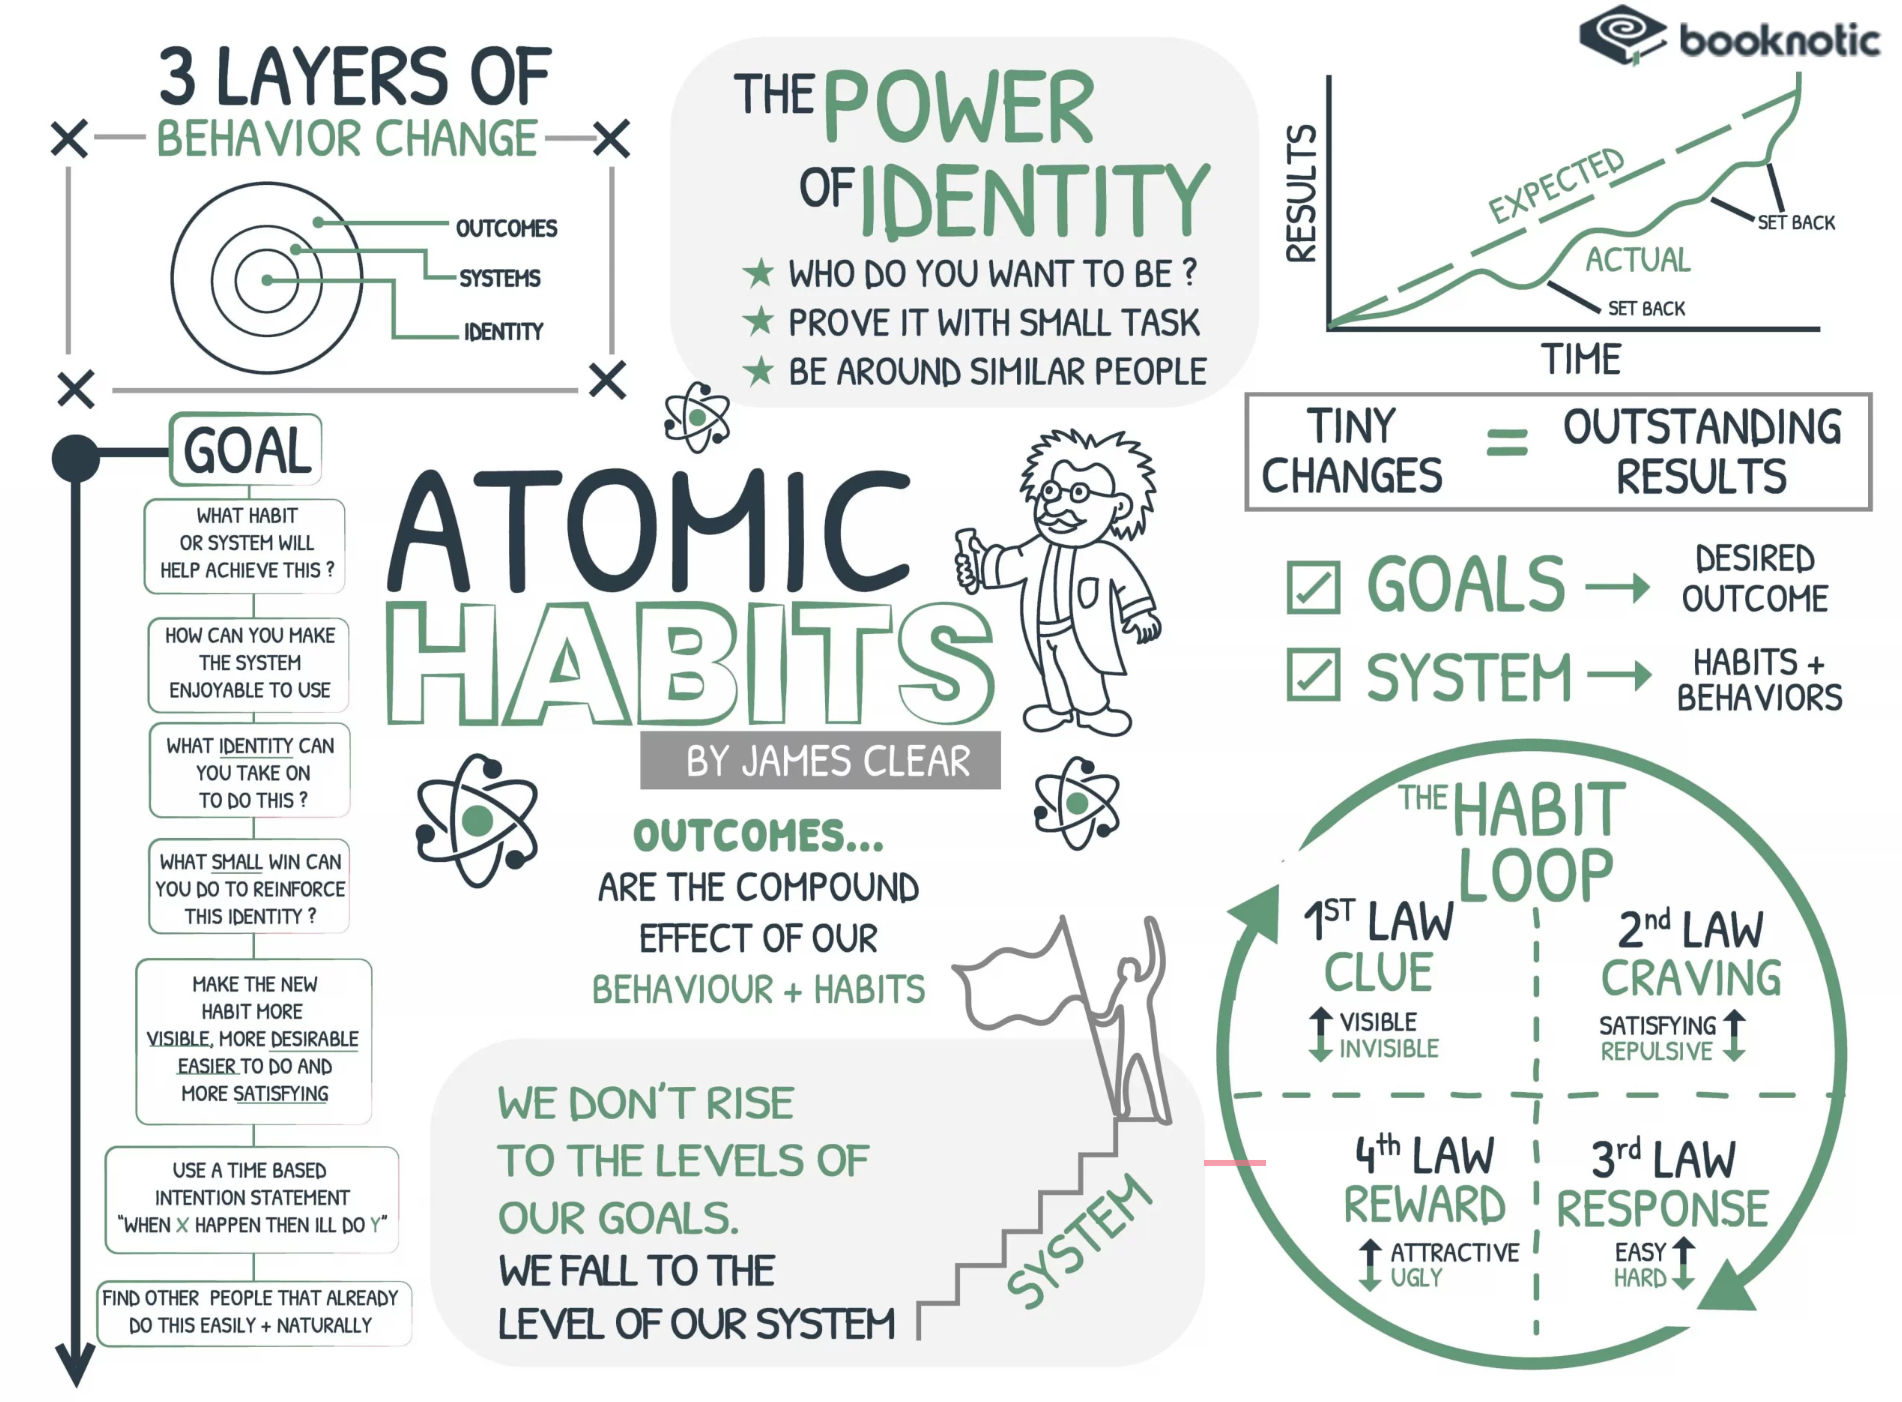 booknotic
3 LAYERS OF
BEHAVIOR CHANGE
OUTCOMES
SYSTEMS
IDENTITY
THE POWER
OF IDENTITY
★ WHO DO YOU WANT TO BE ?
★ PROVE IT WITH SMALL TASK
★ BE AROUND SIMILAR PEOPLE
RESULTS
EXPECTED
ACTUAL
SET BACK
SET BACK
TIME
TINY
CHANGES
=
OUTSTANDING
RESULTS
GOALS →
DESIRED
OUTCOME
SYSTEM →
HABITS +
BEHAVIORS
GOAL
WHAT HABIT
OR SYSTEM WILL
HELP ACHIEVE THIS ?
HOW CAN YOU MAKE
THE SYSTEM
ENJOYABLE TO USE
WHAT IDENTITY CAN
YOU TAKE ON
TO DO THIS ?
WHAT SMALL WIN CAN
YOU DO TO REINFORCE
THIS IDENTITY ?
MAKE THE NEW
HABIT MORE
VISIBLE, MORE DESIRABLE
EASIER TO DO AND
MORE SATISFYING
USE A TIME BASED
INTENTION STATEMENT
"WHEN X HAPPEN THEN ILL DO Y"
FIND OTHER PEOPLE THAT ALREADY
DO THIS EASILY + NATURALLY
ATOMIC
HABITS
BY JAMES CLEAR
OUTCOMES...
ARE THE COMPOUND
EFFECT OF OUR
BEHAVIOUR + HABITS
WE DON'T RISE
TO THE LEVELS OF
OUR GOALS.
WE FALL TO THE
LEVEL OF OUR SYSTEM
SYSTEM
THE HABIT
LOOP
1ST LAW
CLUE
↑ VISIBLE
↓ INVISIBLE
2nd LAW
CRAVING
SATISFYING ↑
REPULSIVE ↓
4th LAW
REWARD
↑ ATTRACTIVE
↓ UGLY
3rd LAW
RESPONSE
EASY ↑
HARD ↓